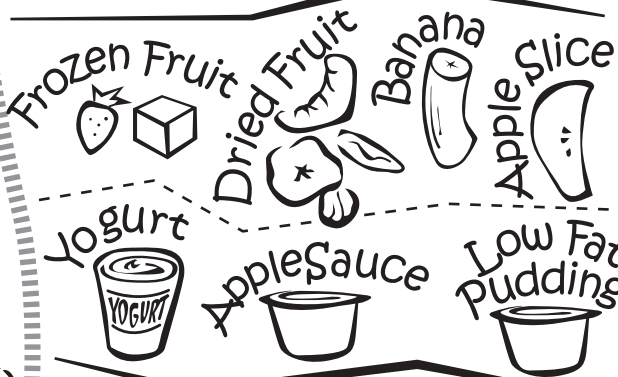 Frozen Fruit
Dried Fruit
Banana
Apple Slice
Yogurt
YOGURT
AppleSauce
Low Fat
Pudding